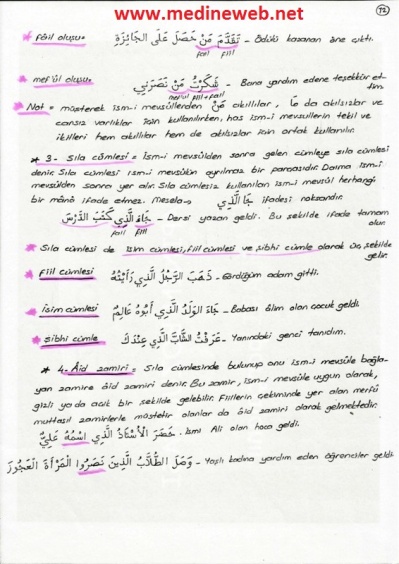 www.medineweb.net
72
* fâil oluşu= تَقَدَّمَ مَنْ حَصَلَ عَلَى الْجَائِزَةِ - Ödülü kazanan öne çıktı.
fail fiil
* mef'ûl oluşu= شَكَرْتُ مَنْ نَصَرَنِي - Bana yardım edene teşekkür et-
tim.
mef'ul fiil+fail
* Not = müşterek ism-i mevsûllerden مَنْ akıllılar, مَا da akılsızlar ve
cansız varlıklar için kullanılırken, has ism-i mevsullerin tekil ve
ikilleri hem akıllılar hem de akılsızlar için ortak kullanılır.
* 3- Sıla cümlesi = İsm-i mevsûlden sonra gelen cümleye sıla cümlesi
denir. Sıla cümlesi ism-i mevsûlün ayrılmaz bir parçasıdır. Daima ism-i
mevsûlden sonra yer alır. Sıla cümlesiz kullanılan ism-i mevsûl herhangi
bir mânâ ifade etmez. Mesela-> جَا الَّذِي ifadesi noksandır.
جَاءَ الَّذِي كَتَبَ الدَّرْسَ - Dersi yazan geldi. Bu şekilde ifade tamam
olur.
fail fiil
* Sıla cümlesi de isim cümlesi, fiil cümlesi ve şibhi cümle olarak üç şekilde
gelir.
* Fiil cümlesi ذَهَبَ الرَّجُلُ الَّذِي رَأَيْتُهُ - Gördüğüm adam gitti.
* İsim cümlesi جَاءَ الْوَلَدُ الَّذِي أَبُوهُ عَالِمٌ - Babası âlim olan çocuk geldi.
* Şibhi cümle - عَرَفْتُ الشَّابَّ الَّذِي عِنْدَكَ - Yanındaki genci tanıdım.
* 4- Âid zamiri = Sıla cümlesinde bulunup onu ism-i mevsûle bağla-
yan zamire âid zamiri denir. Bu zamir, ism-i mevsûle uygun olarak,
gizli ya da açık bir şekilde gelebilir. Fiillerin çekiminde yer alan merfû
muttasıl zamirlerle müstetir olanlar da âid zamiri olarak gelmektedir.
حَضَرَ الْأُسْتَاذُ الَّذِي اسْمُهُ عَلِيٌّ. İsmi Ali olan hoca geldi.
وَصَلَ الطُّلَّابُ الَّذِينَ نَصَرُوا الْمَرْأَةَ الْعَجُوزَ - Yaşlı kadına yardım eden öğrenciler geldi.